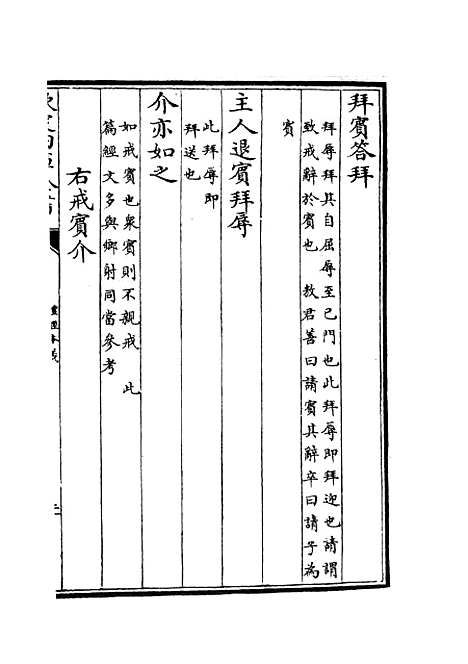 拜賓答拜
拜辱拜其自屈辱至己門也此拜辱即拜迎也請謂
致戒辭於賓也　敖君善曰請賓其辭卒曰請子為
賓
主人退賓拜辱
此拜辱即
拜送也
介亦如之
如戒賓也衆賓則不親戒　此
篇經文多與鄉射同當參考
右戒賓介